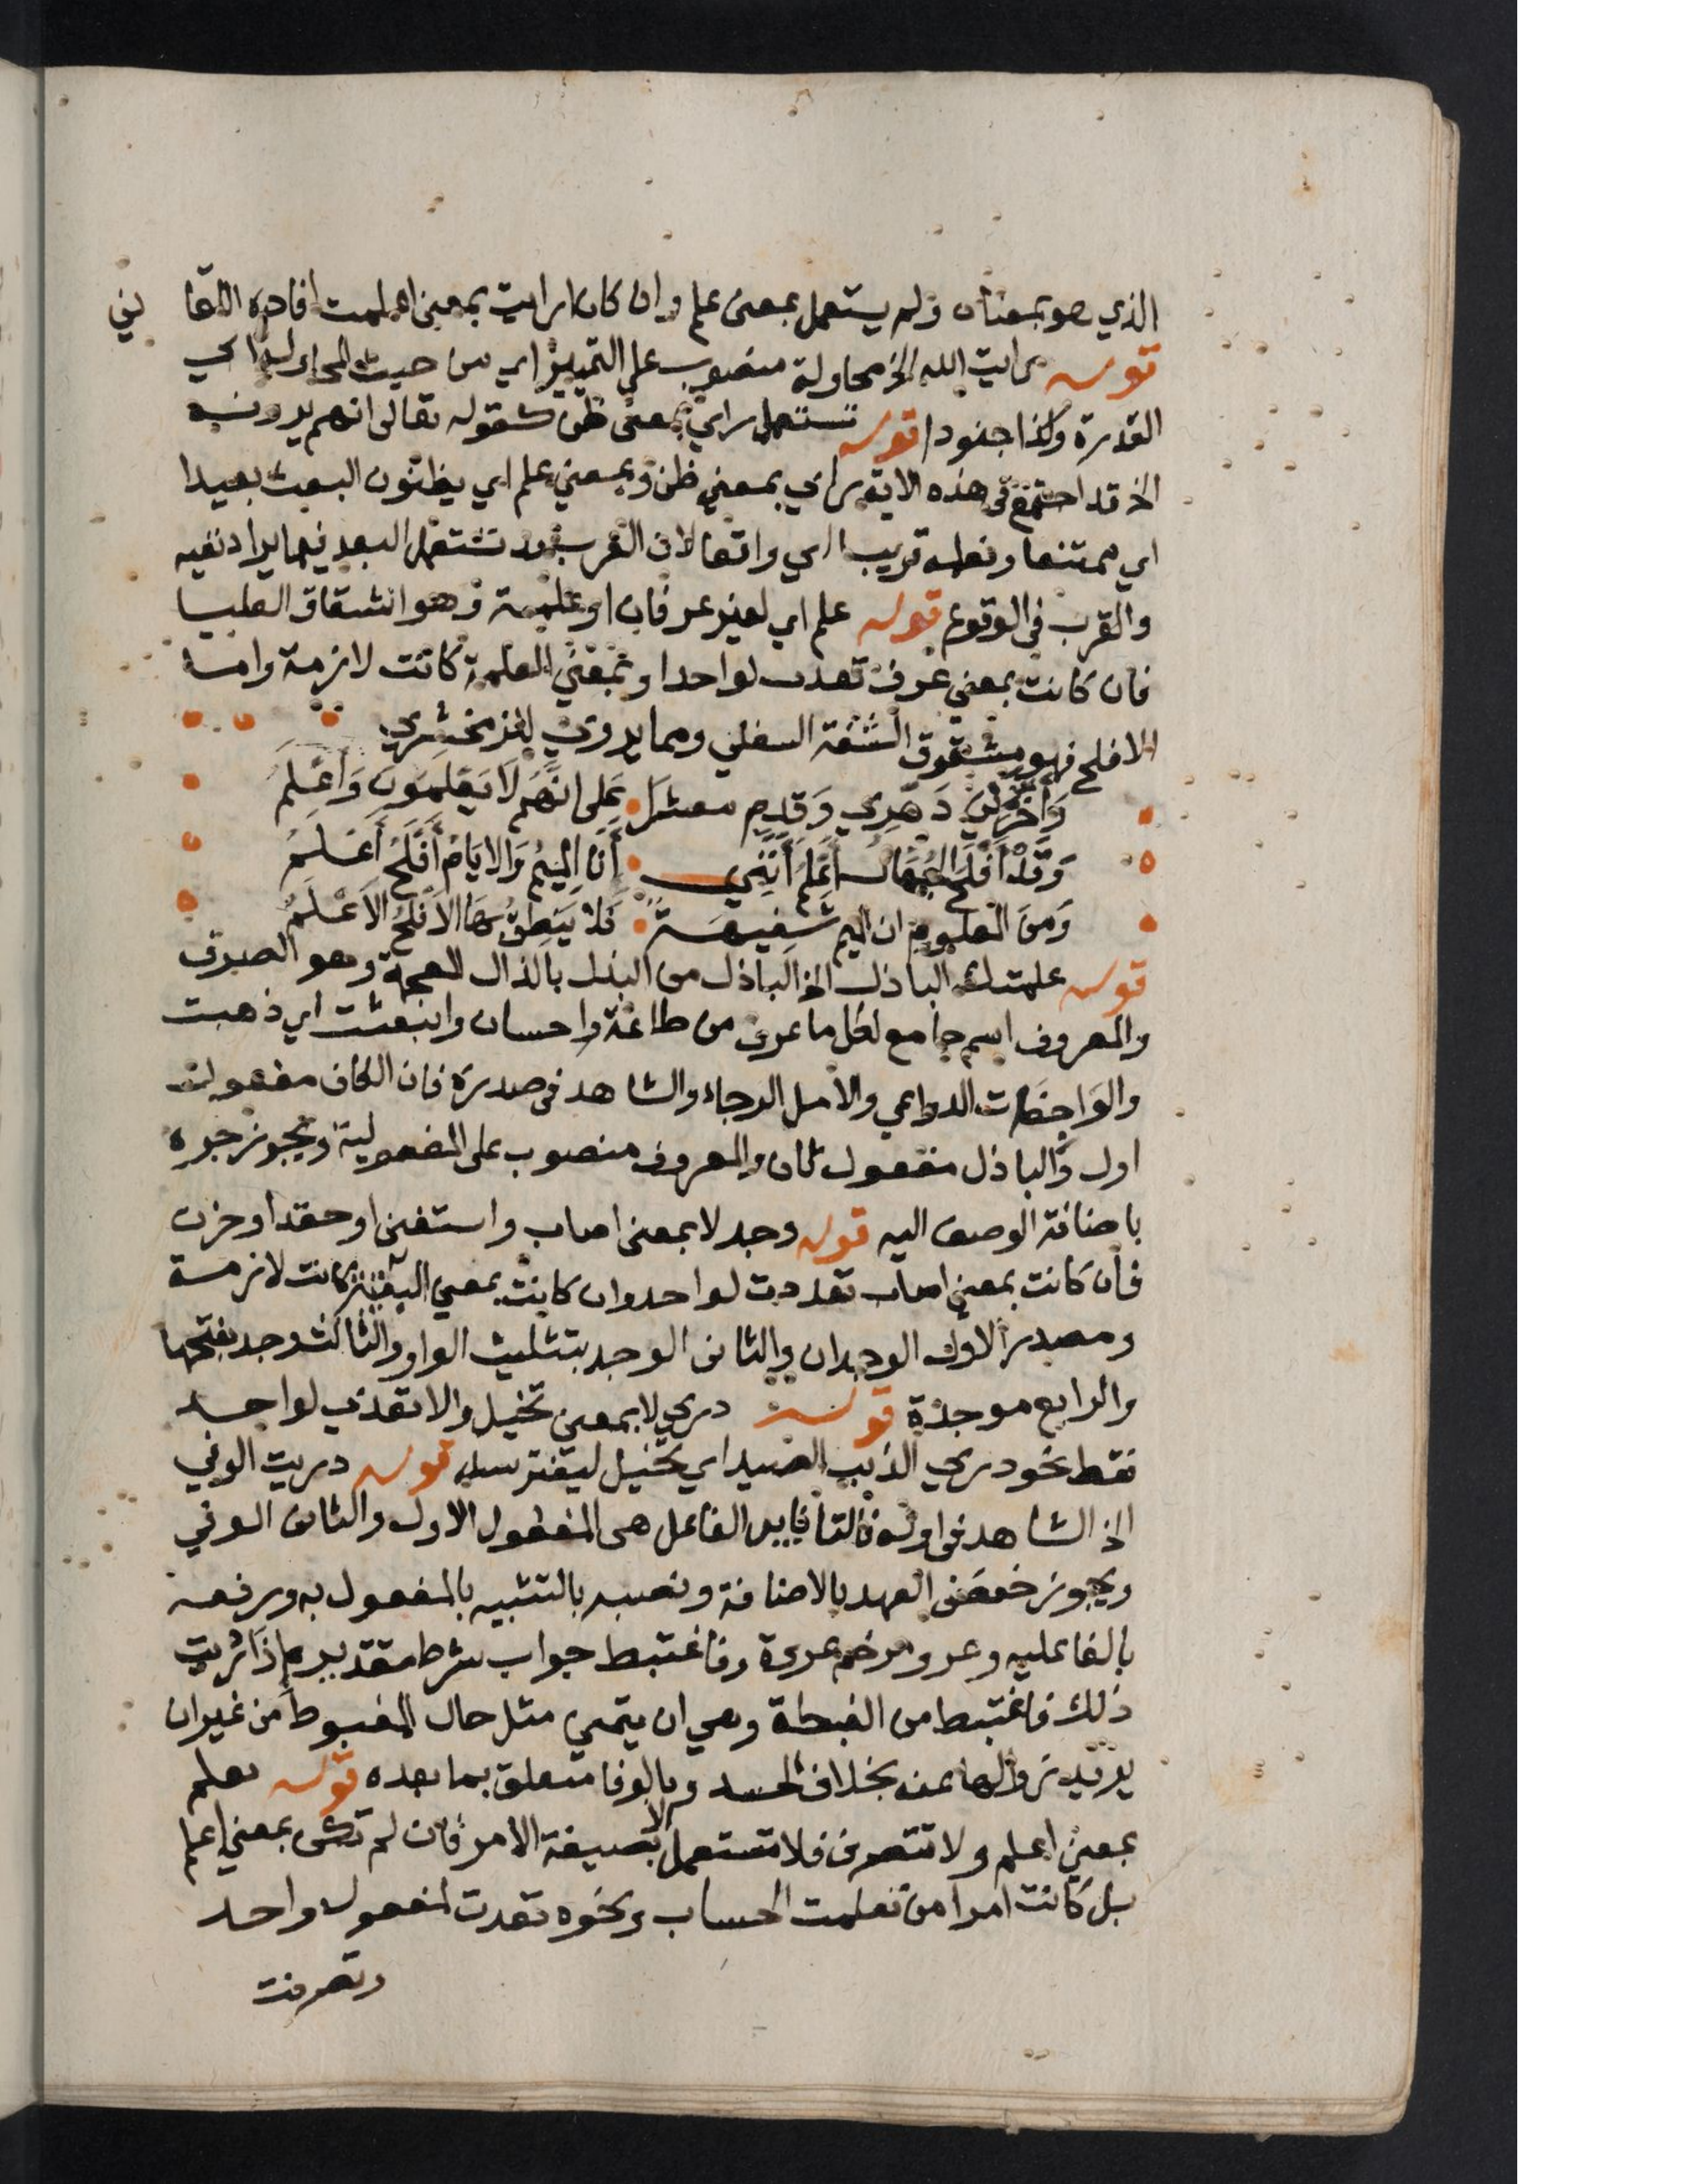 الذي هو بمعناه ولم يستعمل بمعنى علم وان كان ارايت بمعنى اعلمت افاده اللقا ني
قوله رايت الله الخ محاولة منصوب على التمييز اي من حيث المحاولة اي
القدرة وكذا جنودا قوله تستعمل راي بمعنى ظن كقوله تعالى انهم يرونه
الخ قد اجتمع في هذه الاية راي بمعنى ظن وبمعني علم اي يظنون البعث بعيدا
اي ممتنعا ونعلمه قريبا اي واقعا لان العرب تستعمل البعد فيما يراد نفيه
والقرب في الوقوع قوله علم اي لغير عرفان او علمة وهو انشقاق العليا
فان كانت بمعني عرف تعدت لواحد او بمعني العلمة كانت لازمة واما
الافلح فهو مشقوق الشفة السفلي ومما يروي للزمخشري
وَأَخَّرَنِي دَهْرِي وَقدم معشرا على انَّهم لا يَعْلَمُونَ وَأَعْلَم
وَقَدْ أَفْلَحَ الجُهَّال أَعْلَمُ أَنَّنِي أَنَا المِيمُ وَالايَامُ أَفْلَحُ أَعْلَمُ
وَمِنَ المعلوم ان الميم شَفِيهَة فَلا يَنْطِقُ بهَا الأَفْلَحُ الأَعْلَمُ
قوله علمتك الباذل الخ الباذل من البذل بالذال المعجمة وهو الصرف
والمعروف اسم جامع لكل ما عرف من طاعة واحسان وانبعثت اي ذهبت
والواجفات الدواعي والامل الرجاء والشاهد في صدره فان الكاف مفعول
اول والباذل مفعول ثان والمعروف منصوب على المفعولية ويجوز جره
باضافة الوصف اليه قوله وجد لا بمعنى اصاب واستغنى او حقد او حزن
فان كانت بمعني اصاب تعددت لواحد وان كانت بمعني البقية كانت لازمة
ومصدر الاول الوجدان والثاني الوجد بتثليث الواو والثالث وجد بفتحها
والرابع موجدة قوله دري لا بمعني تخيل والا تعدي لواحد
فقط نحو دري الذيب الصيد اي تخيل ليفترسه قوله دريت الوفي
الخ الشاهد في اوله فالتا نايب الفاعل هي المفعول الاول والثاني الوفي
ويجوز خفض العهد بالاضافة ونصبه بالتشبيه بالمفعول به ورفعه
بالفاعليه وعرو مرخم عروة وفاغتبط جواب شرط مقدير اذا دريت
ذلك فاغتبط من الغبطة وهي ان يتمني مثل حال المغبوط من غير ان
يريد زوالها عنه بخلاف الحسد وبالوفا متعلق بما بعده قوله تعلم
بمعني اعلم ولا تتصرف فلا تستعمل الا بصيغة الامر فان لم تكن بمعني اعلم
بل كانت امرا من تعلمت الحساب ونحوه تعدت لمفعول واحد
وتصرفت